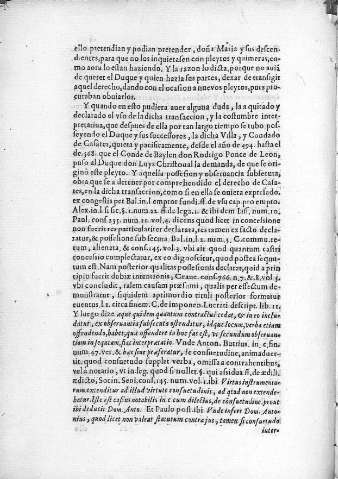 ello pretendian y podian pretender, doña Maria y sus descen-
dientes, para que no los inquietasen con pleytos y quimeras, co-
mo aora lo estan haziendo. Y la razon lo dicta, porque no auia
de querer el Duque y quien hazia sus partes, dexar de transigir
aquel derecho, dando con el ocasion a nuevos pleytos, pues pro-
curaban obuiarlos.
Y quando en esto pudiera auer alguna duda, la a quicado y
declarado el vso de la dicha transaccion, y la costumbre inter-
pretatiua, que despues de ella por tan largo tiempo se tubo pos-
seyendo el Duque y sus successores, la dicha Villa, y Condado
de Casares, quieta y pacificamente, desde el año de 494. hasta el
de 568. que el Conde de Baylen don Rodrigo Ponce de Leon,
puso al Duque don Luys Christoual la demanda, de que se ori-
ginò este pleyto. Y aquella possession y obseruancia subsecuta,
obra que se a de tener por comprehendido el derecho de Casa-
res, en la dicha transaccion, como si en ella se vuiera expressado.
ex congestis per Bal. in l. emptor fundi. ff. de vsu cap. pro empto.
Alex. in l. si sic. §. 1. num. 12. ff. de lega. 1. & ibi num. 10,
Paul. cons. 335. num. 11. vol. 4. dicens quod licet in concessione
non fuerit res particulariter declarata, res tamen ex facto decla-
ratur, & possesione subsecuta
cessio complectatur, ex eo dignoscitur, quod postea sequu-
tum est. Nam posterior qualitas possessionis declarat, quid a prin
cipio fuerit dobiæ intentionis, Craue. cons. 966. n. 7. & 8. vol. 5.
vbi concludit, talem causam præsumi, qualis per effectum de-
monstratur, siquidem aprimordio tituli posterior formatur
euentus, l. 1. circa finem C. de imponen. Lucrat. descrip. lib. 11.
Y luego dize. aqut quidem quantum contractui cedat, & in eo inclu-
ditur, ex obseruantia subsecuta ostenditur, idque locum, verba etiam
offendendo, habet, que offendere in hoc fas est, vt secundum obseruan-
tiam intrinsecam, fiat interpretatio. Vnde Anton. Butrius. in c. fin.
num. 67. ver. & hæc sine præfertur, se consuetudine, animaduer-
tit. quod consuetudo supplet verba, omissa a contrahentibus,
vel à notario, vt in leg. quod si noller. §. qui assidua. ff. de ædili.
ædicto, Socin. Seni. cons. 145. num. vol. 1. ibi Virtus instrumento-
rum extenditur ad illud virtute consuetudinis, ad quod non extende-
batur. Iste est casus notabilis in c cum dilectus, de consuetudine. prout
ibi deducit Dom. Anto. Et Paulo post. ibi Vnde infert Dom. Anto-
nius, quod licet non valeat statutum contra ius, tamen si consuetudo
inter-